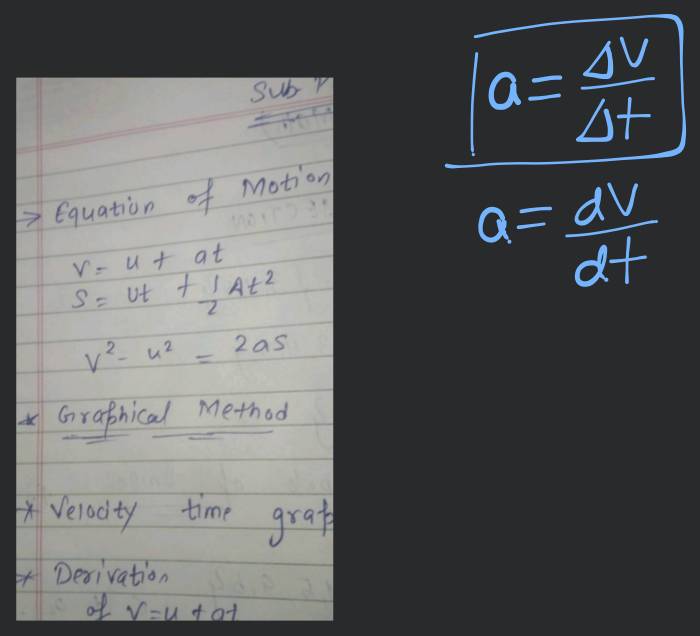 Sub
→ Equation of Motion
v = u + at
S = ut + 1/2 At²
v² - u² = 2as
* Graphical Method
* Velocity time grap
* Derivation
of v=u+at
a = Δv/Δt
a = dv/dt